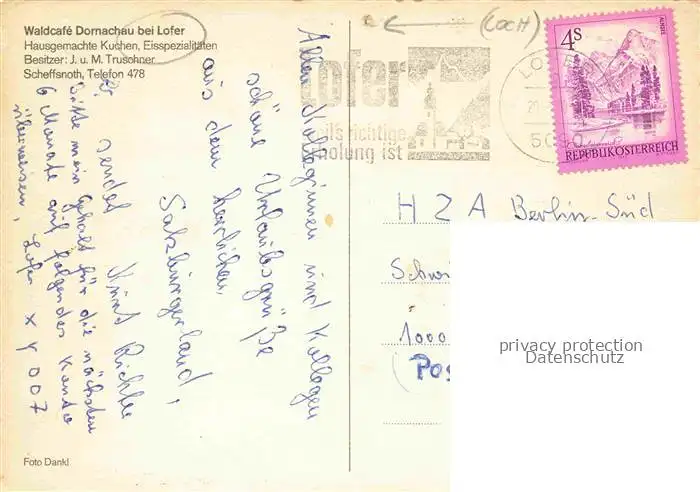 Waldcafé Dornachau bei Lofer
Hausgemachte Kuchen, Eisspezialitäten
Besitzer: J. u. M. Truschner
Scheffsnoth, Telefon 478
Allen Kolleginnen und Kollegen
schöne Urlaubsgrüße
aus dem herrlichen
Salzburgerland,
sendet
Kurt Richter
Bitte mein Gehalt für die nächsten
6 Monate auf folgendes Konto
überweisen, Lofer x y 007
Foto Dankl
(LOCH)
Lofer
weil's richtige
Erholung ist
LOFER
5090
4S
REPUBLIK ÖSTERREICH
HZA Berlin-Süd
Schwi
1000
(Pos
privacy protection
Datenschutz